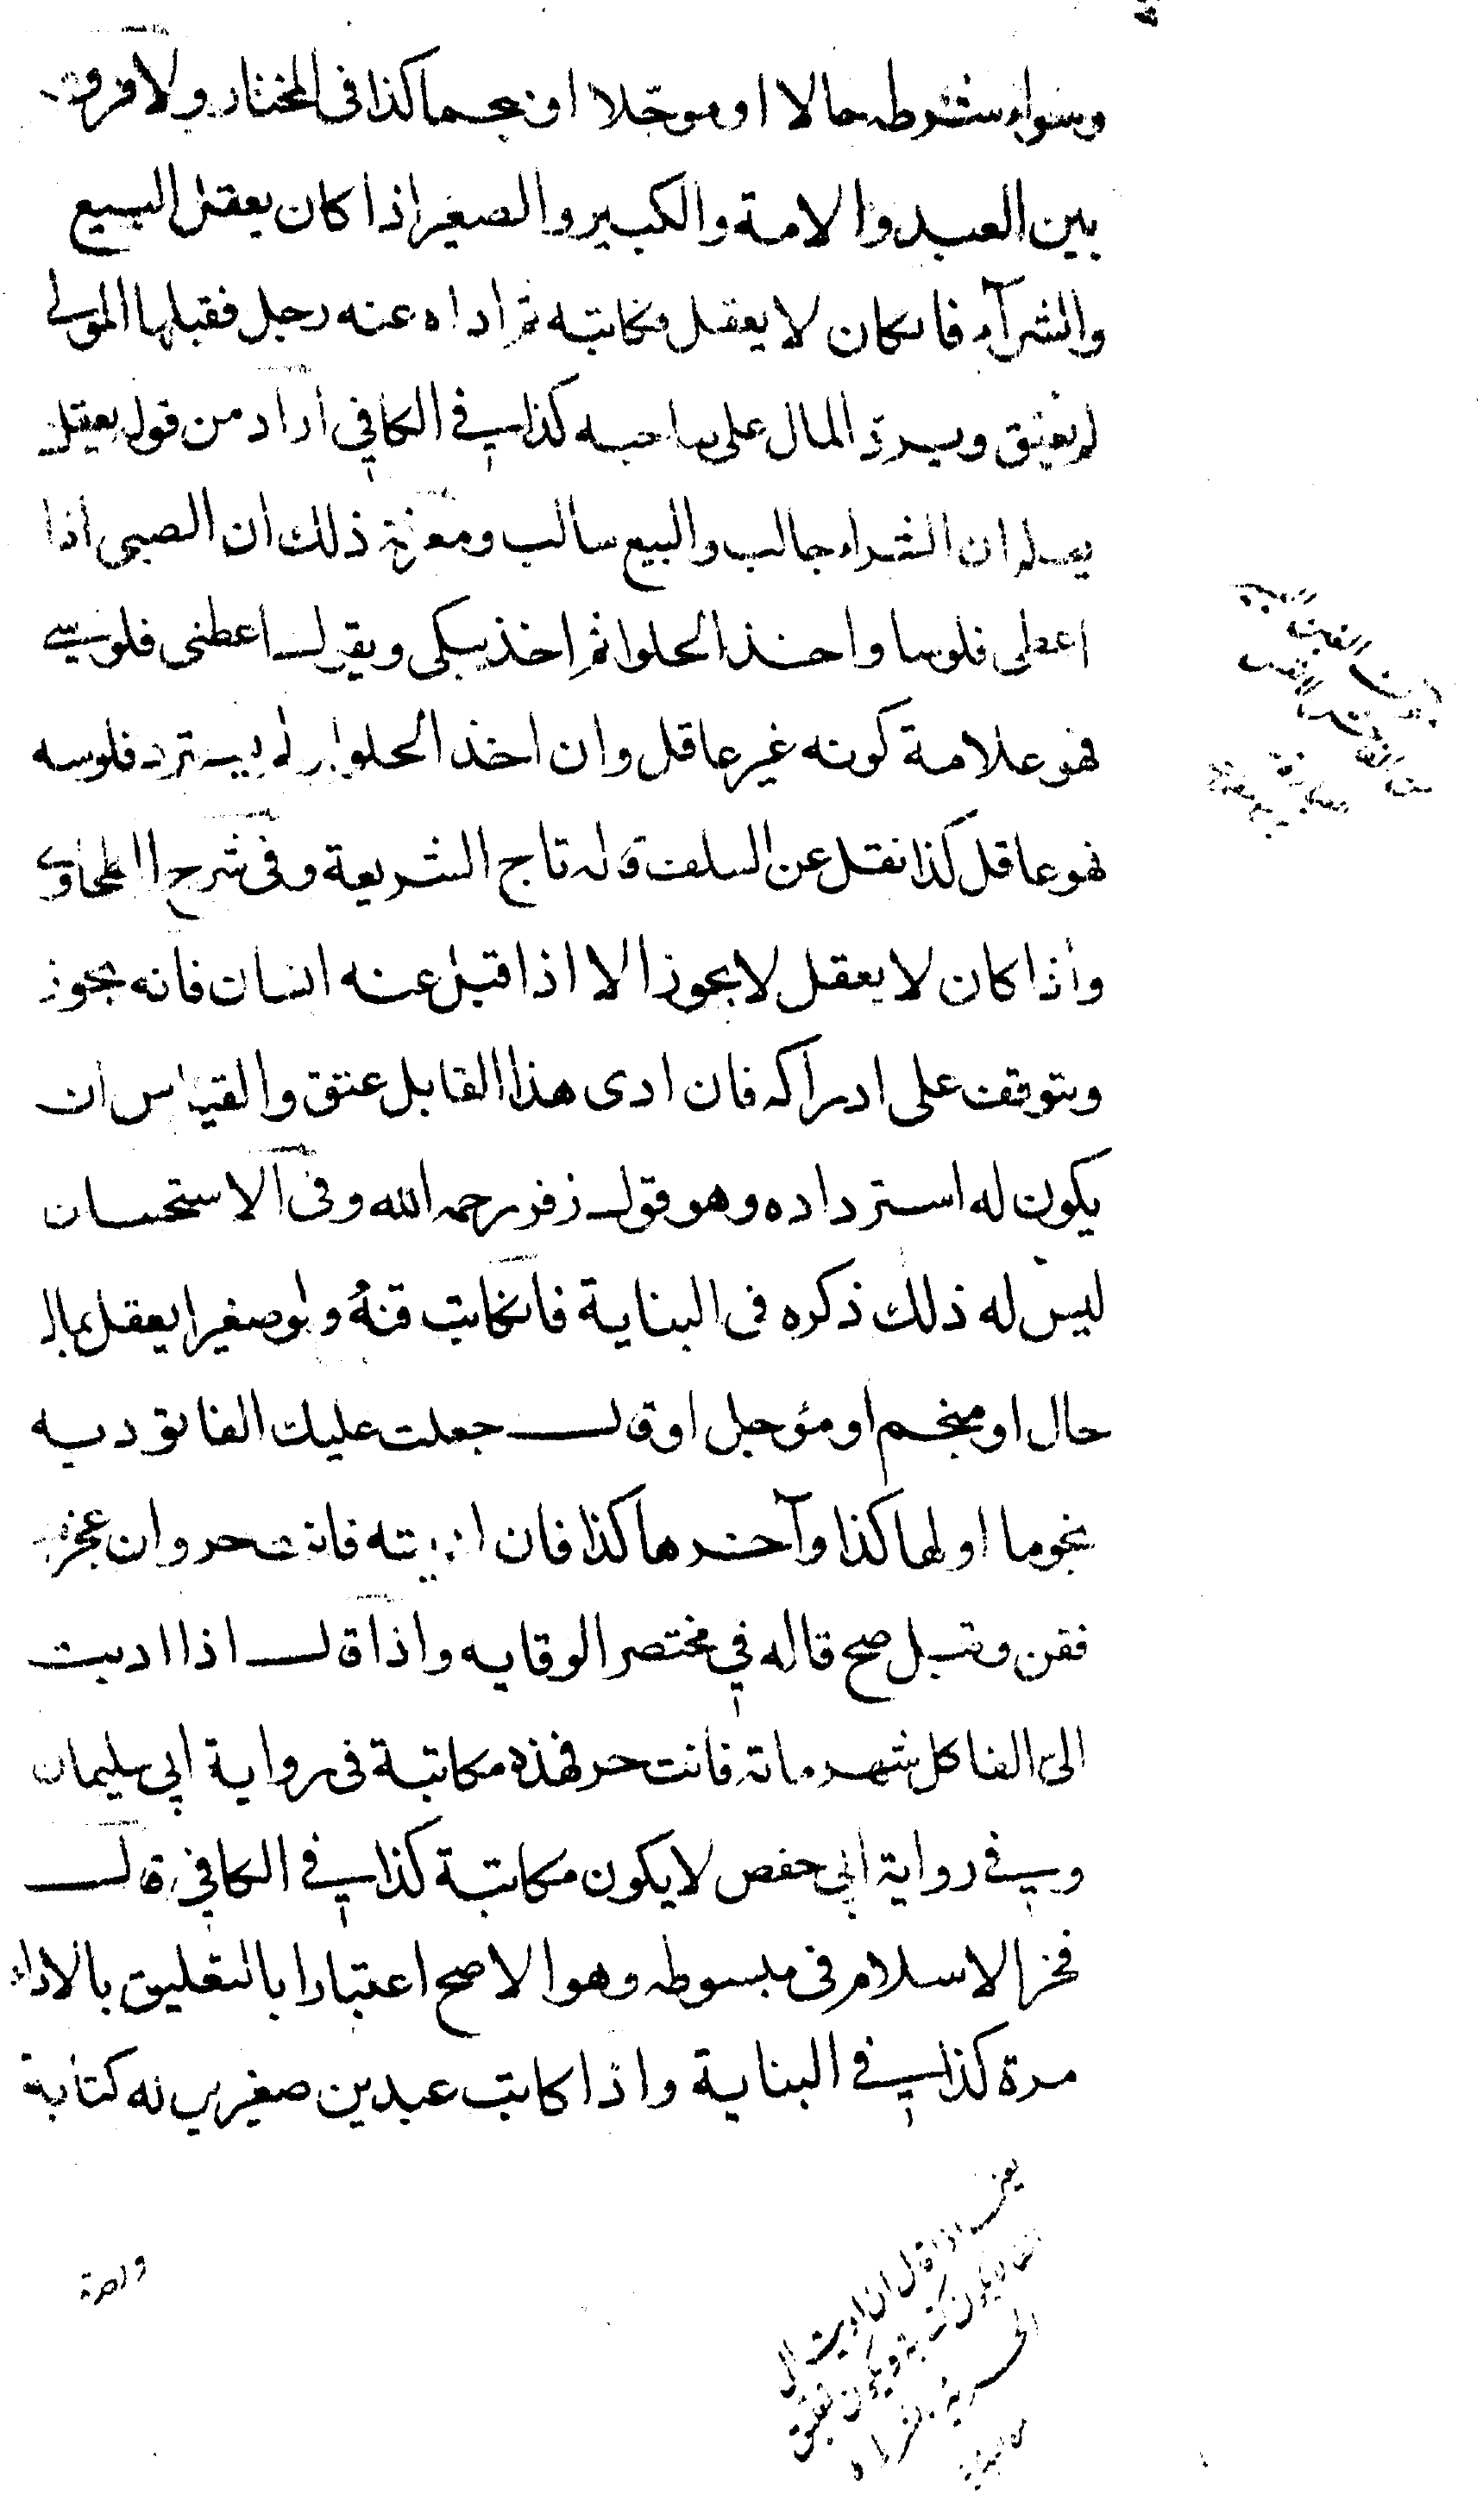 وسواء شرطه حالا او موجلا او نجما كذا فى المختار ولا فرق
بين العبد والامة والكبير والصغير اذا كان يعقل البيع
والشرآء فانكان لا يعقل فكاتبه ثم اداه عنه رجل فقبلها المولى
لم يعتق ويرد المال على صاحبه كذا فى الكافي اراد من قوله يعقل
يعلم ان الشراء جالب والبيع سالب ومعرفة ذلك ان الصبى اذا
اعطى فلوسا واخذ الحلوا ثم اخذ يبكى ويقول اعطنى فلوسي
فهو علامة كونه غير عاقل وان اخذ الحلوا ولم يسترد فلوسه
فهو عاقل كذا نقل عن السلف قاله تاج الشريعة وفى شرح الطحاوى
واذا كان لا يعقل لا يجوز الا اذا قبل عنه انسان فانه يجوز
ويتوقف على ادراكه فان ادى هذا القابل عتق والقياس ان
يكون له استرداده وهو قول زفر رحمه الله وفى الاستحسان
ليس له ذلك ذكره فى البناية فانكاتب قنه ولو صغيرا يعقل بمال
حال او منجم او مؤجل او قال جعلت عليك الفا تؤديه
نجوما اولها كذا وآخرها كذا فان اديته فانت حر وان عجزت
فقن وقبل صح قاله في مختصر الوقايه واذا قال اذا اديت
الى الفا كل شهر مائة فانت حر فهذه مكاتبة فى رواية ابي سليمان
وفي رواية ابى حفص لا يكون مكاتبة كذا فى الكافي قال
فخر الاسلام فى مبسوطه وهو الاصح اعتبارا بالتعليق بالاداء
مرة كذا فى البناية واذا كاتب عبدين صغيرين له كتابة
واحدة